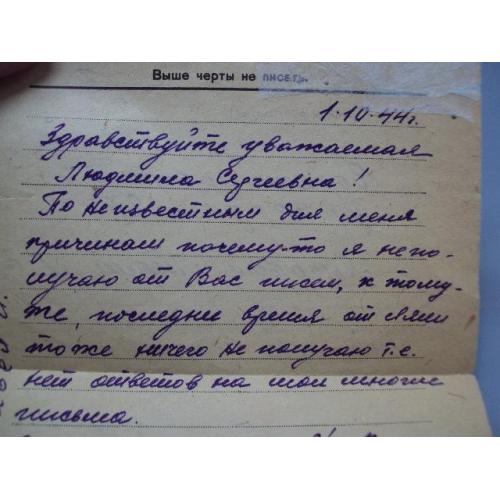 Выше черты не писать.
1.10.44г.
Здравствуйте уважаемая
Людмила Сергеевна!
По неизвестным для меня
причинам почему-то я непо-
лучаю от Вас писем, к тому-
же, последнее время от Ляли
тоже ничего не получаю т.е.
нет ответов на мои многие
письма.